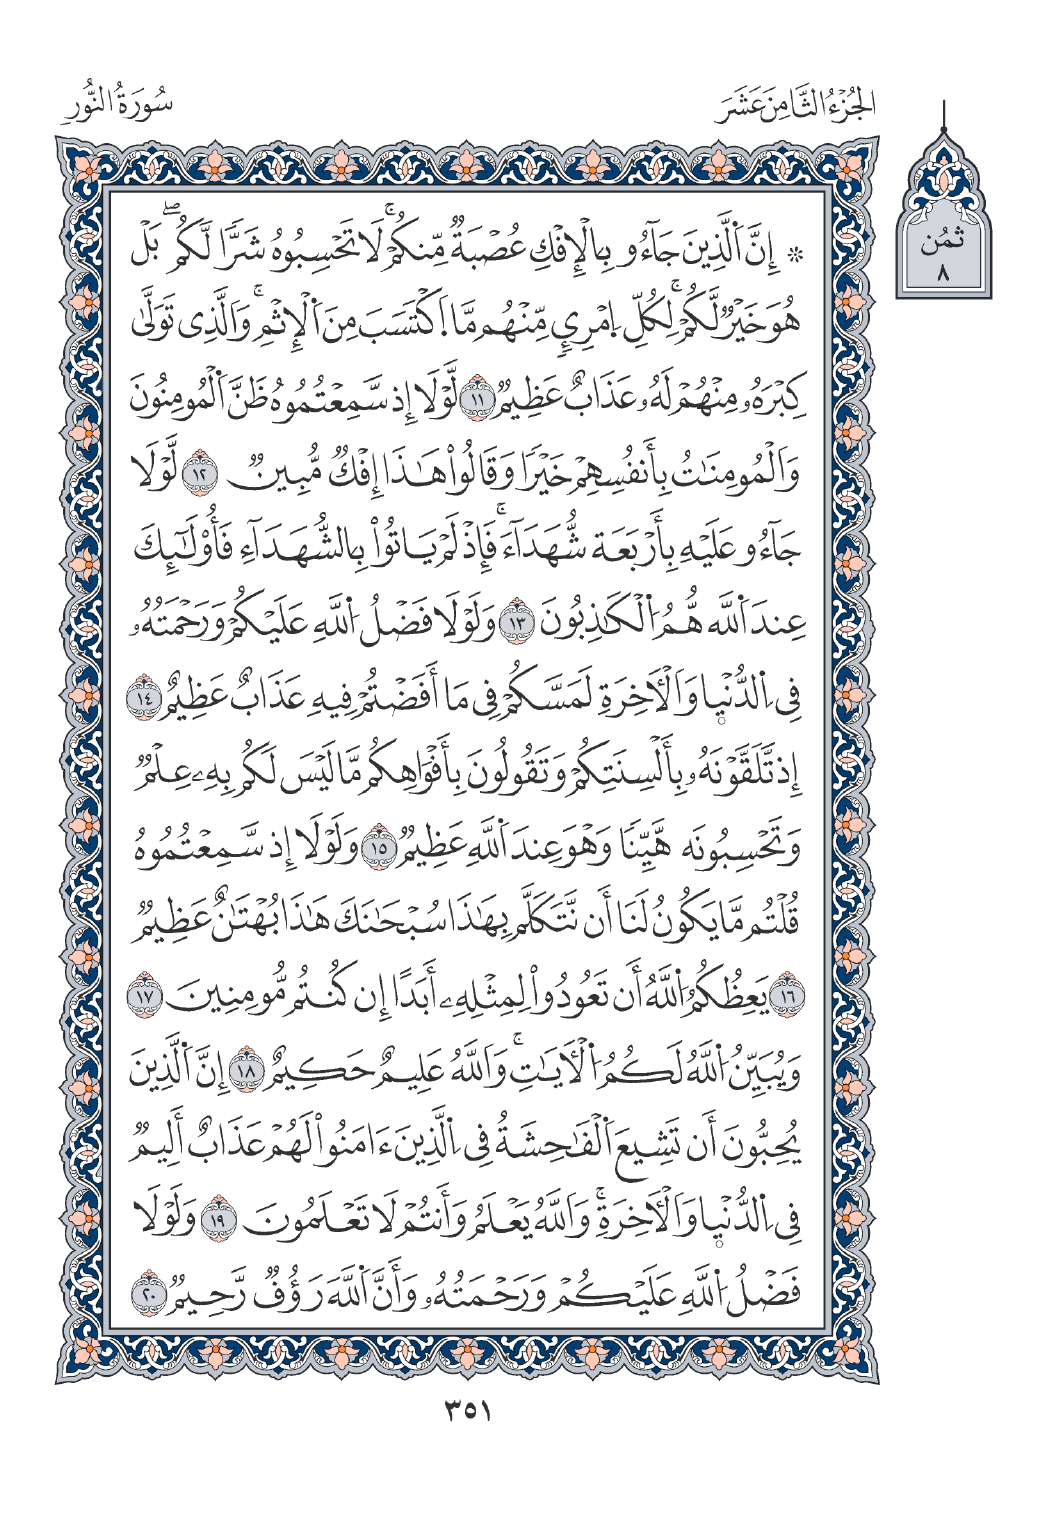 الجُزْءُ الثَّامِنَ عَشَرَ
سُورَةُ النُّورِ
ثمُن
٨
۞ إِنَّ ٱلَّذِينَ جَآءُو بِالۡإِفۡكِ عُصۡبَةٌ مِّنكُمۡۚ لَا تَحۡسِبُوهُ شَرًّا لَّكُمۖ بَلۡ
هُوَ خَيۡرٌ لَّكُمۡۚ لِكُلِّ ٱمۡرِيٕٖ مِّنۡهُم مَّا ٱكۡتَسَبَ مِنَ ٱلۡإِثۡمِۚ وَٱلَّذِى تَوَلَّىٰ
كِبۡرَهُۥ مِنۡهُمۡ لَهُۥ عَذَابٌ عَظِيمٌ ١١ لَّوۡلَا إِذ سَّمِعۡتُمُوهُ ظَنَّ ٱلۡمُومِنُونَ
وَٱلۡمُومِنَٰتُ بِأَنفُسِهِمۡ خَيۡرًا وَقَالُواْ هَٰذَا إِفۡكٌ مُّبِينٌ ١٢ لَّوۡلَا
جَآءُو عَلَيۡهِ بِأَرۡبَعَة شُّهَدَآءَۚ فَإِذۡ لَمۡ يَاتُواْ بِالشُّهَدَآءِ فَأُوْلَٰٓئِكَ
عِندَ ٱللَّه هُّمُ ٱلۡكَٰذِبُونَ ١٣ وَلَوۡلَا فَضۡلُ ٱللَّهِ عَلَيۡكُمۡ وَرَحۡمَتُهُۥ
فِى ٱلدُّنۡيٜا وَٱلۡأَخِرَةِ لَمَسَّكُمۡ فِى مَا أَفَضۡتُمۡ فِيهِ عَذَابٌ عَظِيمٌ ١٤
إِذ تَّلَقَّوۡنَهُۥ بِأَلۡسِنَتِكُمۡ وَتَقُولُونَ بِأَفۡوَاهِكُم مَّا لَيۡسَ لَكُم بِهِۦ عِلۡمٌ
وَتَحۡسِبُونَه هَّيِّنًا وَهۡوَ عِندَ ٱللَّهِ عَظِيمٌ ١٥ وَلَوۡلَا إِذ سَّمِعۡتُمُوهُ
قُلۡتُم مَّا يَكُونُ لَنَا أَن نَّتَكَلَّم بِهَٰذَا سُبۡحَٰنَكَ هَٰذَا بُهۡتَٰنٌ عَظِيمٌ
١٦ يَعِظُكُمُ ٱللَّهُ أَن تَعُودُواْ لِمِثۡلِهِۦ أَبَدًا إِن كُنتُم مُّومِنِينَ ١٧
وَيُبَيِّنُ ٱللَّهُ لَكُمُ ٱلۡأَيَٰتِۚ وَٱللَّهُ عَلِيمٌ حَكِيمٌ ١٨ إِنَّ ٱلَّذِينَ
يُحِبُّونَ أَن تَشِيعَ ٱلۡفَٰحِشَةُ فِى ٱلَّذِينَ ءَامَنُواْ لَهُمۡ عَذَابٌ أَلِيمٌ
فِى ٱلدُّنۡيٜا وَٱلۡأَخِرَةِۚ وَٱللَّهُ يَعۡلَمُ وَأَنتُمۡ لَا تَعۡلَمُونَ ١٩ وَلَوۡلَا
فَضۡلُ ٱللَّهِ عَلَيۡكُمۡ وَرَحۡمَتُهُۥ وَأَنَّ ٱللَّهَ رَؤُفٌ رَّحِيمٌ ٢٠
٣٥١